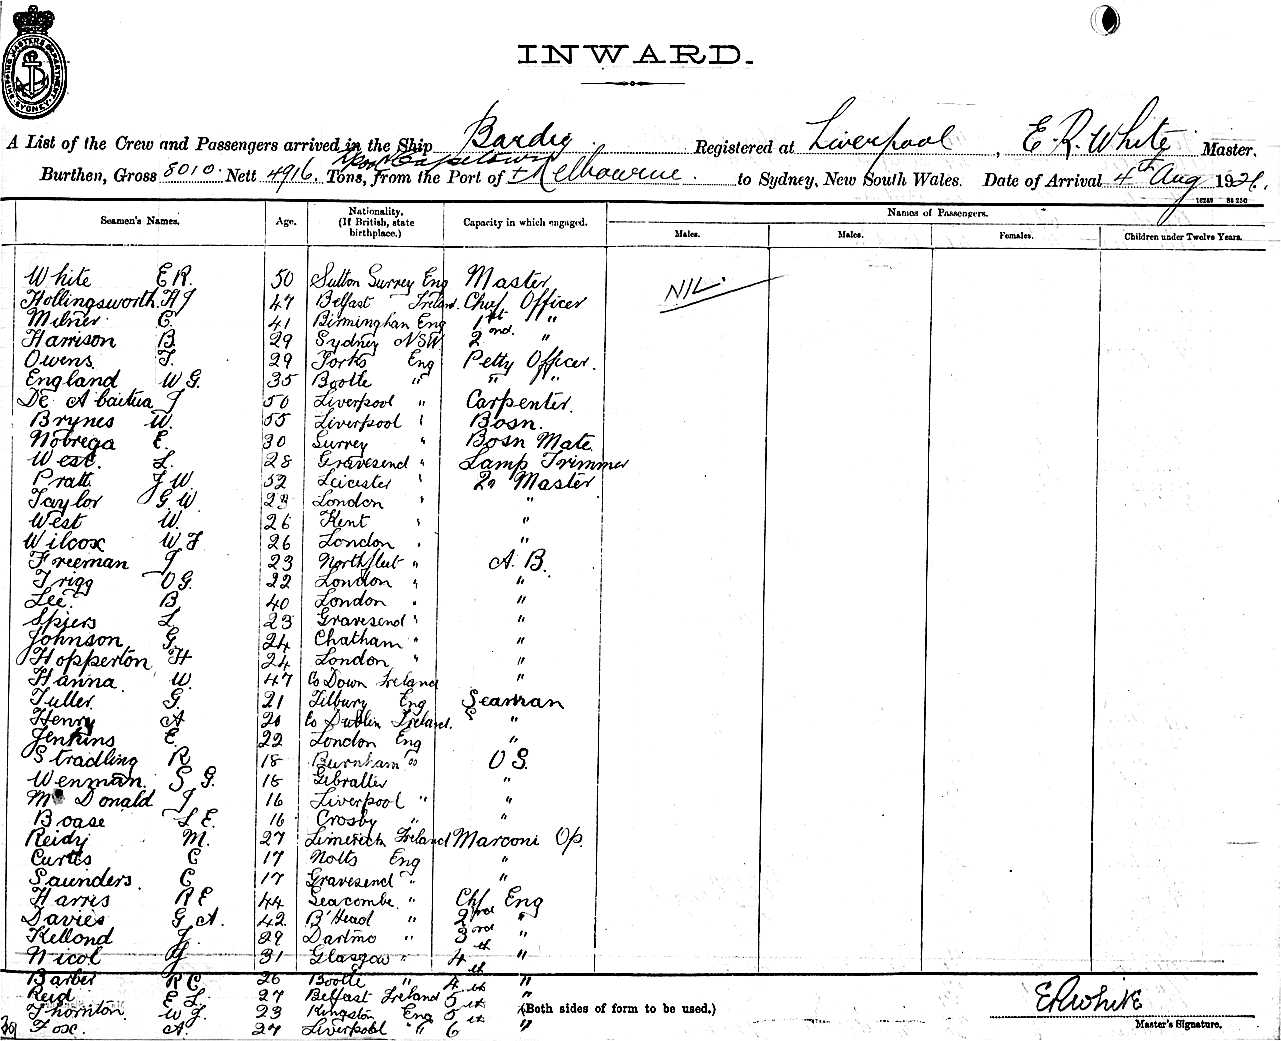 SHIPPING MASTERS DEPARTMENT SYDNEY
INWARD.
A List of the Crew and Passengers arrived in the Ship Bardic Registered at Liverpool, E. R. White Master.
Burthen, Gross 8010 Nett 4916. Tons, from the Port of Capetown + Melbourne to Sydney, New South Wales. Date of Arrival 4th Aug 1926.
Seamen's Names. Age. Nationality. (If British, state birthplace.) Capacity in which engaged. Names of Passengers.
Males. Males. Females. Children under Twelve Years.
White E R. 50 Sutton Surrey Eng Master NIL.
Hollingsworth. H J 47 Belfast Ireland. Chief Officer
Milner C. 41 Birmingham Eng 1st "
Harrison B. 29 Sydney NSW 2nd. "
Owens. T. 29 Yorks Eng Petty Officer.
England W G. 35 Bootle " " "
De Abaitua J 50 Liverpool " Carpenter.
Brynes W. 55 Liverpool " Bosn.
Nobrega E. 30 Surrey " Bosn Mate
West. L. 28 Gravesend " Lamp Trimmer
Pratt J W. 52 Leicester " Qr Master
Taylor G W. 23 London " "
West W. 26 Kent " "
Wilcox W F 26 London " "
Freeman J 23 Northfleet " A. B.
Trigg O G. 22 London " "
Lee B 40 London " "
Spiers L 23 Gravesend " "
Johnson G. 24 Chatham " "
Hopperton H 24 London " "
Hanna W. 47 Co Down Ireland "
Tuller G. 21 Tilbury Eng Seaman
Henry A 20 Co Dublin Ireland. "
Jenkins E. 22 London Eng "
Stradling R 18 Burnham " O S.
Wenman. S G. 18 Gibralter "
Mc Donald J 16 Liverpool " "
Boase L E. 16 Crosby " "
Reidy M. 27 Limerick Ireland Marconi Op.
Curtis C 17 Notts Eng "
Saunders. C 17 Gravesend " "
Harris R E 44 Seacombe. " Chf Eng
Davies G A. 42 B'Head " 2nd "
Kellond J. 29 Dartmo " 3rd "
Nicol J 31 Glasgow " 4th "
Barber R C 26 Bootle " 4th "
Reid E L. 27 Belfast Ireland 5th "
Thornton W J. 23 Kingston Eng 5th "
(Both sides of form to be used.)
39 Fox. A. 27 Liverpool " 6th "
E R White
Master's Signature.